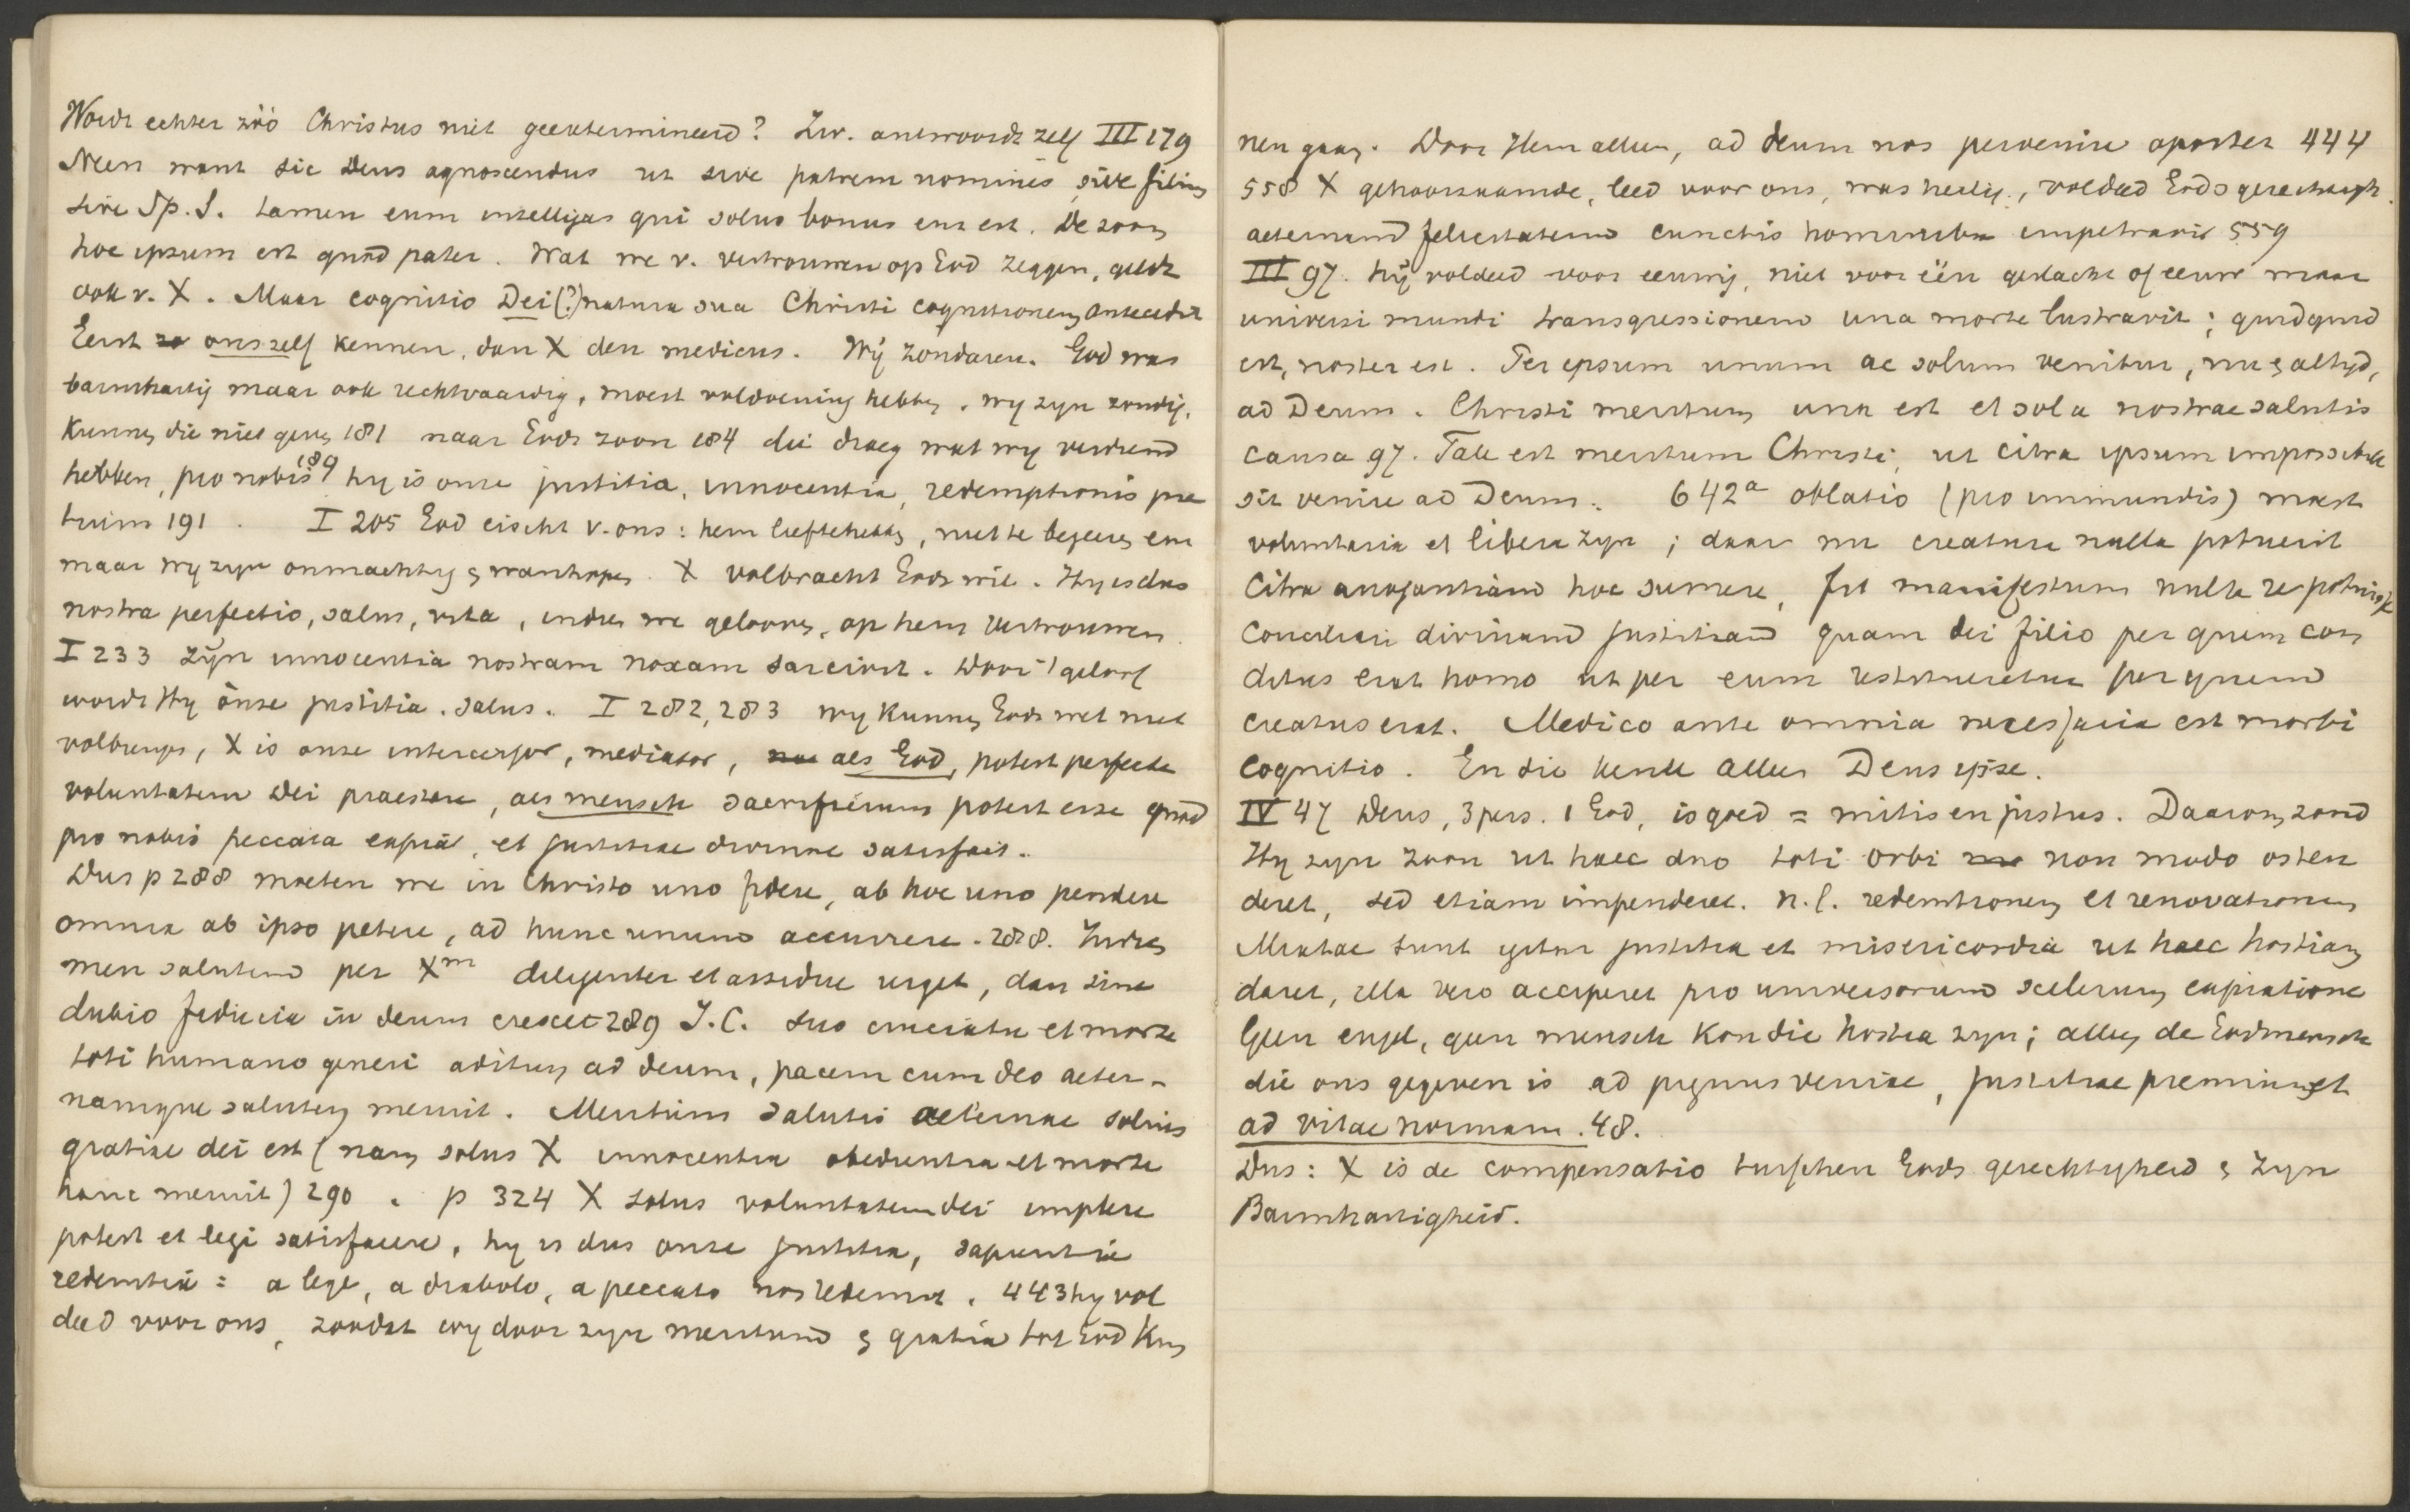 Wordt echter zóó Christus niet geextermineerd? Zw. antwoordt zelf III 179
Neen want sic Deus agnoscendus ut sive patrem nomines sive filium
sive Sp. S. tamen eum intelligas qui solus bonus ens est. De zoon
hoc ipsum est quod pater. Wat we v. vertrouwen op God zeggen, geldt
ook v. X. Maar cognitio Dei (?) natura sua Christi cognitionem antecedit
Eerst ons zelf kennen, dan X den medicus. Wij zondaren. God was
barmhartig maar ook rechtvaardig, moest voldoening hebben. wy zyn zondig,
kunnen die niet geven 181 naar Gods zoon 184 die draeg wat wy verdiend
hebben, pro nobis 189 hy is onze justitia, innocentia, redemptionis pre
tium 191. I 205 God eischt v. ons: hem liefhebben, niet te begeeren enz
maar wy zyn onmachtig & wanhopen. X volbracht Gods wil. Hy is dus
nostra perfectio, salus, vita, indien we gelooven, op hem vertrouwen.
I 233 zijn innocentia nostram noxam sarcivit. Door 't geloof
wordt Hy onze justitia. salus. I 282, 283 wy kunnen Gods wet niet
volbrengen, X is onze intercessor, mediator, als God, potest perfecte
voluntatem Dei praestare, als mensch sacrificium potest esse quod
pro nobis peccata expiat, et justitiae divinae satisfacit.
Dus p 288 moeten we in Christo uno fidere, ab hoc uno pendere
omnia ab ipso petere, ad hunc unum accurrere. 288. Indien
men salutem per Xm diligenter et assidue urget, dan sine
dubio fiducia in deum crescet 289 J.C. suo cruciatu et morte
toti humano generi aditum ad deum, pacem cum deo aeter-
namque salutem meruit. Meritum salutis aeternae solius
gratiae dei est (nam solus X innocentia obedientia et morte
hanc meruit) 290. p 324 X solus voluntatem dei implere
potest et legi satisfacere, hy is dus onze justitia, sapientia
redemtio = a lege, a diabolo, a peccato nos redemit. 443 hy vol
deed voor ons, zoodat wy door zyn meritum & gratia tot God kun
nen gaan. Door Hem alleen, ad deum nos pervenire oportet 444
558 X gehoorzaamde, leed voor ons, was heilig, voldeed Gods gerechtigh.
aeternam felicitatem cunctis hominibus impetravit 559
III 97. hij voldeed voor eeuwig, niet voor één geslacht of eeuw maar
universi mundi transgressionem una morte lustravit; quidquid
est, noster est. Per ipsum unum ac solum venitur, nu & altyd,
ad Deum. Christi meritum una est et sola nostrae salutis
causa 97. Tale est meritum Christi, ut citra ipsum impossibile
sit venire ad Deum. 642a oblatio (pro immundis) moest
voluntaria et libera zyn; daar nu creatura nulla potuerit
citra arrogantiam hoc sumere, fit manifestum nulla re potuisse
conciliari divinam justitiam quam dei filio per quem con
ditus erat homo ut per eum restitueretur per quem
creatus erat. Medico ante omnia necessaria est morbi
cognitio. En die kende alleen Deus ipse.
IV 47 Deus, 3 pers. 1 God, is goed = mitis en justus. Daarom zond
Hy zyn zoon ut haec duo toti orbi non modo osten
deret, sed etiam impenderet. n.l. redemtionem et renovationem
Mixtae sunt igitur justitia et misericordia ut haec hostiam
daret, illa vero acciperet pro universorum scelerum expiatione
Geen engel, geen mensch kon die hostia zyn; alleen de Godmensch
die ons gegeven is ad pignus veniae, justitiae premium et
ad vitae normam. 48.
Dus: X is de compensatio tusschen Gods gerechtigheid & zyn
Barmhartigheid.